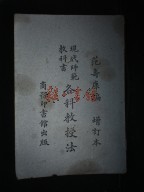 范壽康編 增訂本
現代師範
教科書
各科教授法
商務印書館出版